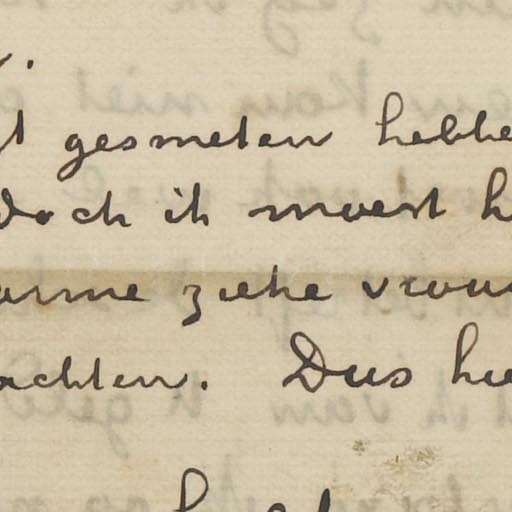 gesmeten hebbe
doch ik moest h
arme zieke vrouw
achten. Dus hie